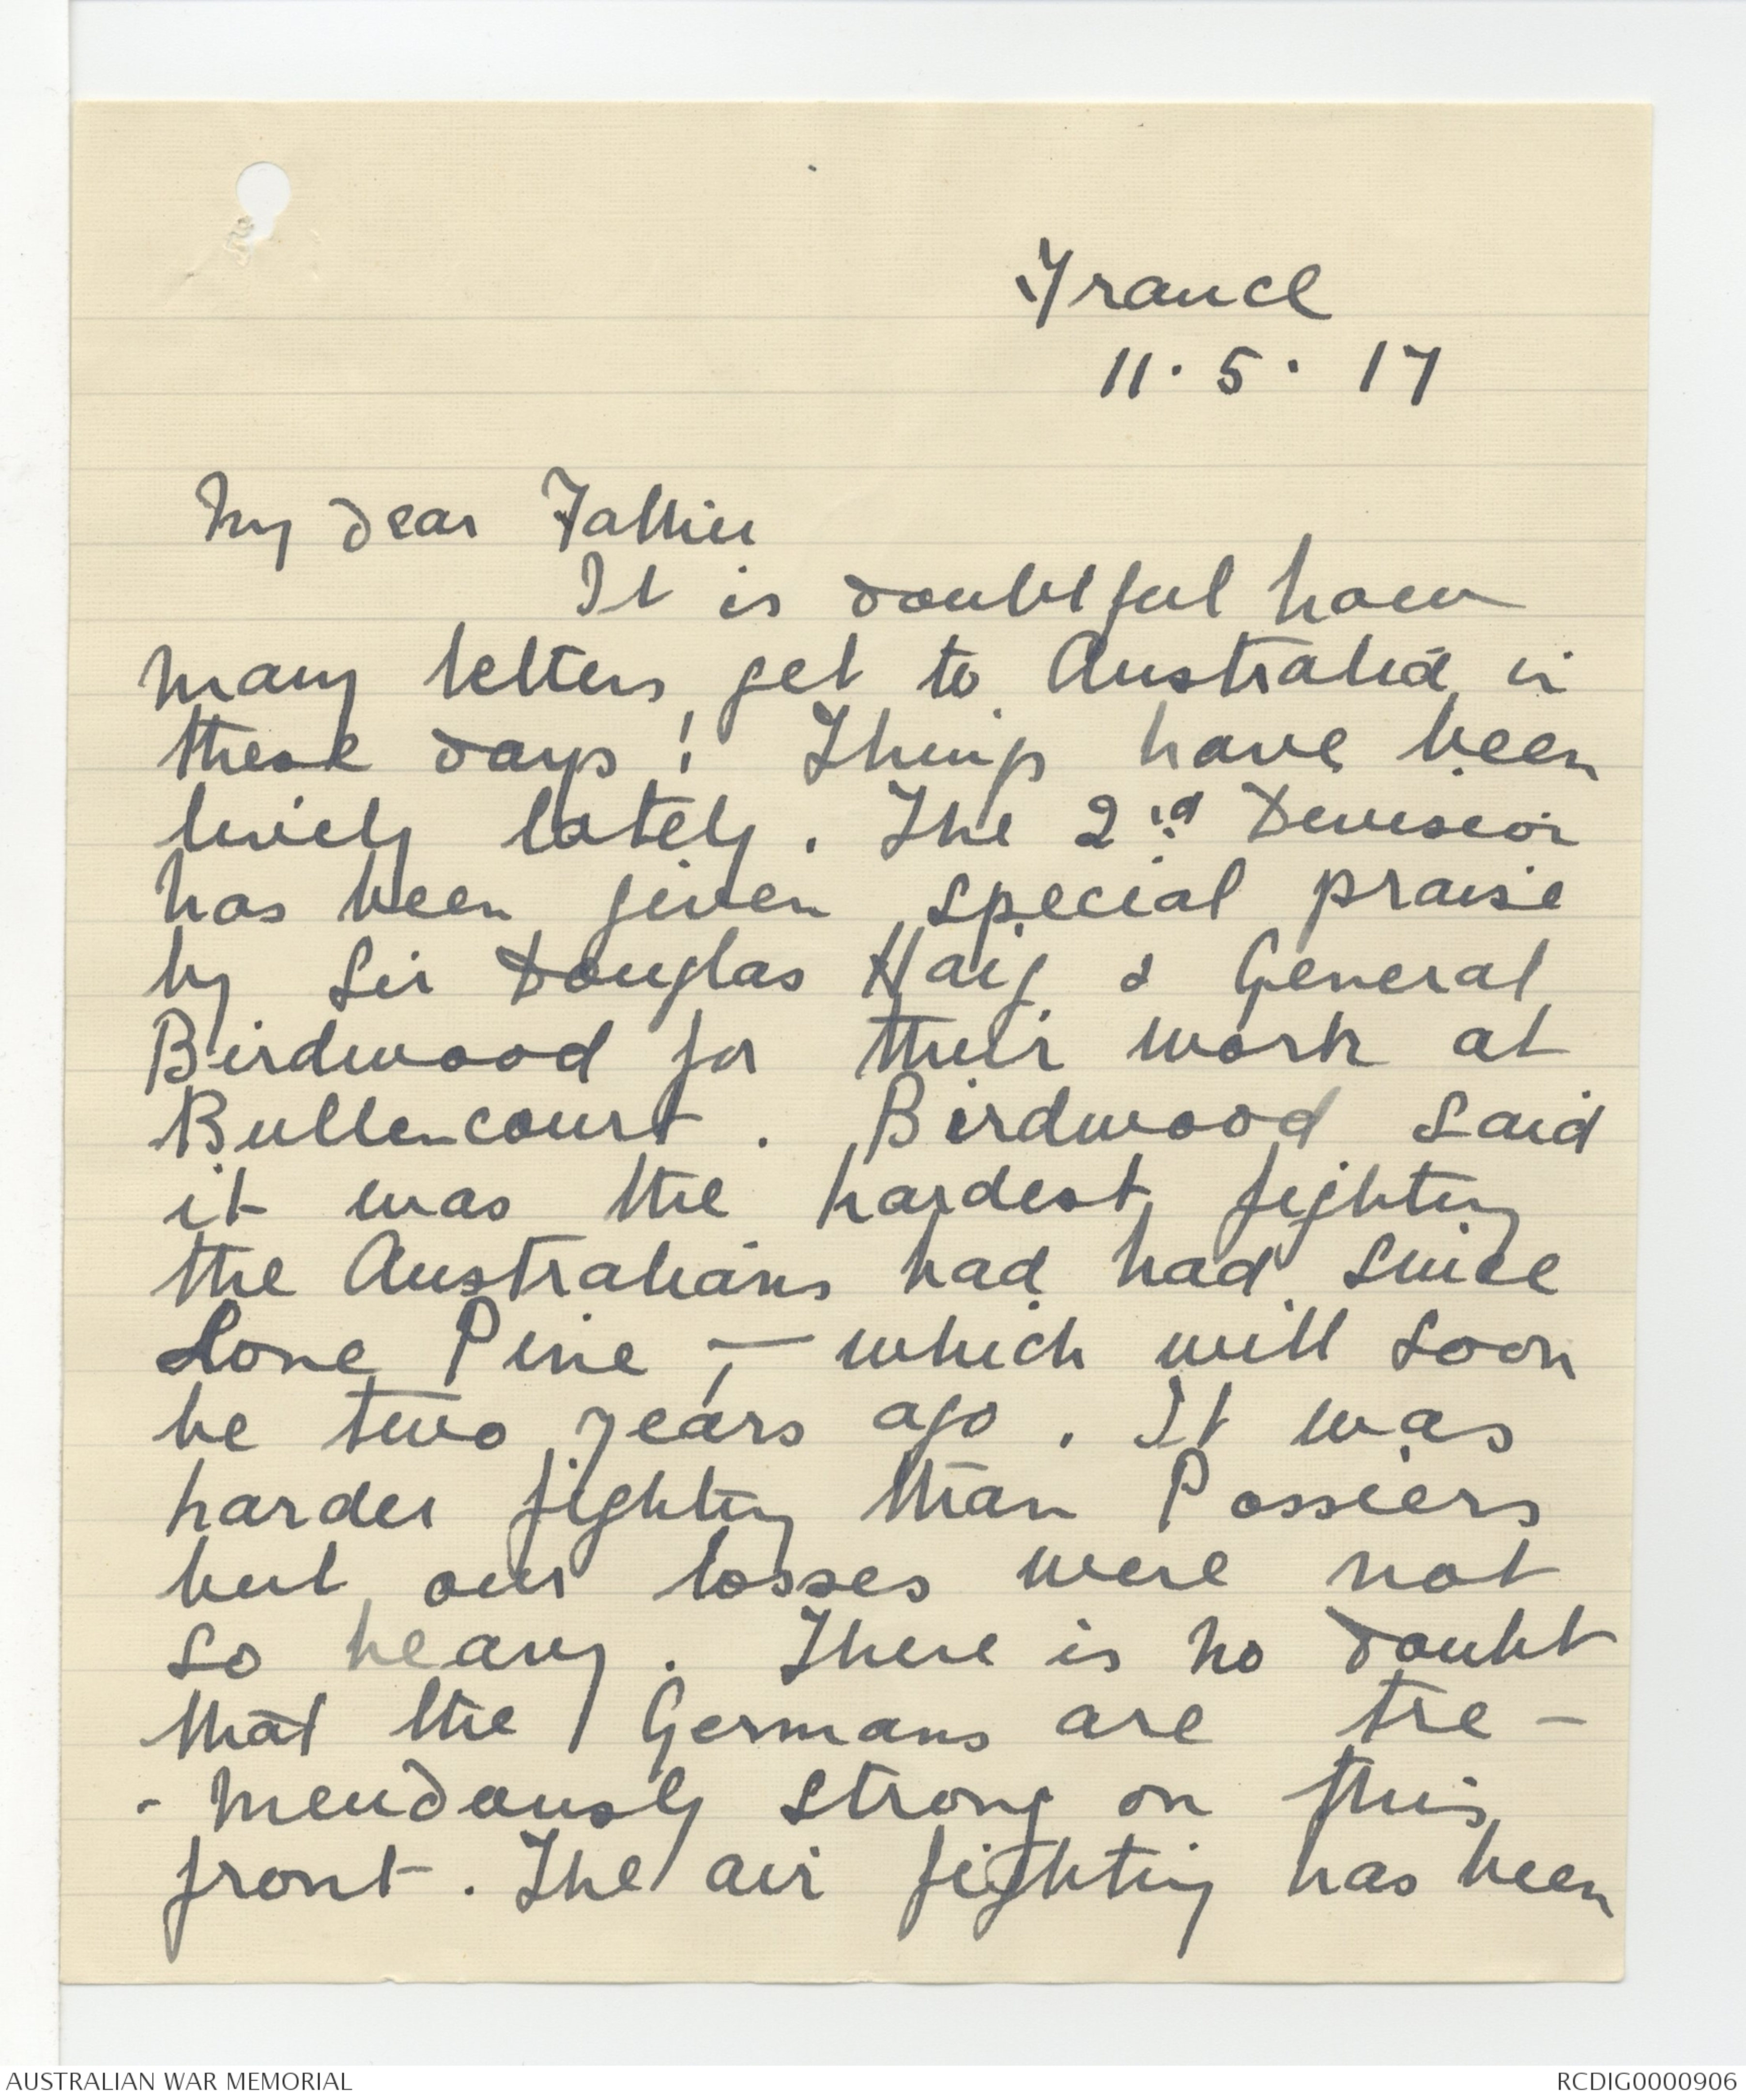 France
11. 5. 17
My dear Father
It is doubtful how
many letters get to Australia in
these days! Things have been
lively lately. The 2nd Division
has been given special praise
by Sir Douglas Haig & General
Birdwood for their work at
Bullencourt. Birdwood said
it was the hardest fighting
the Australians had had since
Lone Pine, — which will soon
be two years ago. It was
harder fighting than Possiers
but our losses were not
so heavy. There is no doubt
that the Germans are tre-
-mendously strong on this
front. The air fighting has been
AUSTRALIAN WAR MEMORIAL
RCDIG0000906